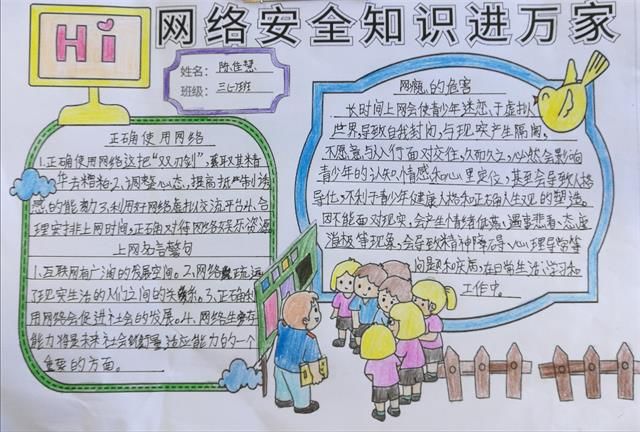 Hi
网络安全知识进万家
姓名：陈佳慧
班级：三(7)班
正确使用网络
1.正确使用网络这把“双刃剑”,汲取其精
华去糟粕2、调整心态,提高抵制诱
惑的能力3.利用好网络虚拟交流平台4.合
理安排上网时间,正确对待网络娱乐资源
上网名言警句
1.互联网有广阔的发展空间。2、网络疏远
了现实生活的人们之间的关系。3、正确利
用网络会促进社会的发展。4、网络生存
能力将是未来社会适应能力的一个
重要的方面。
网瘾的危害
长时间上网会使青少年迷恋于虚拟
世界,导致自我封闭,与现实产生隔阂。
不愿意与人行面对交往,久而久之,必然会影响
青少年的认知、情感和心里定位,甚至会导致人格
异化,不利于青少年健康人格和正确人生观的塑造。
因不能面对现实,会产生情绪低落、遇事悲看、态度
消极等现象,会导致精神障碍、心理异常等
问题和疾病,在日常生活、学习和
工作中。